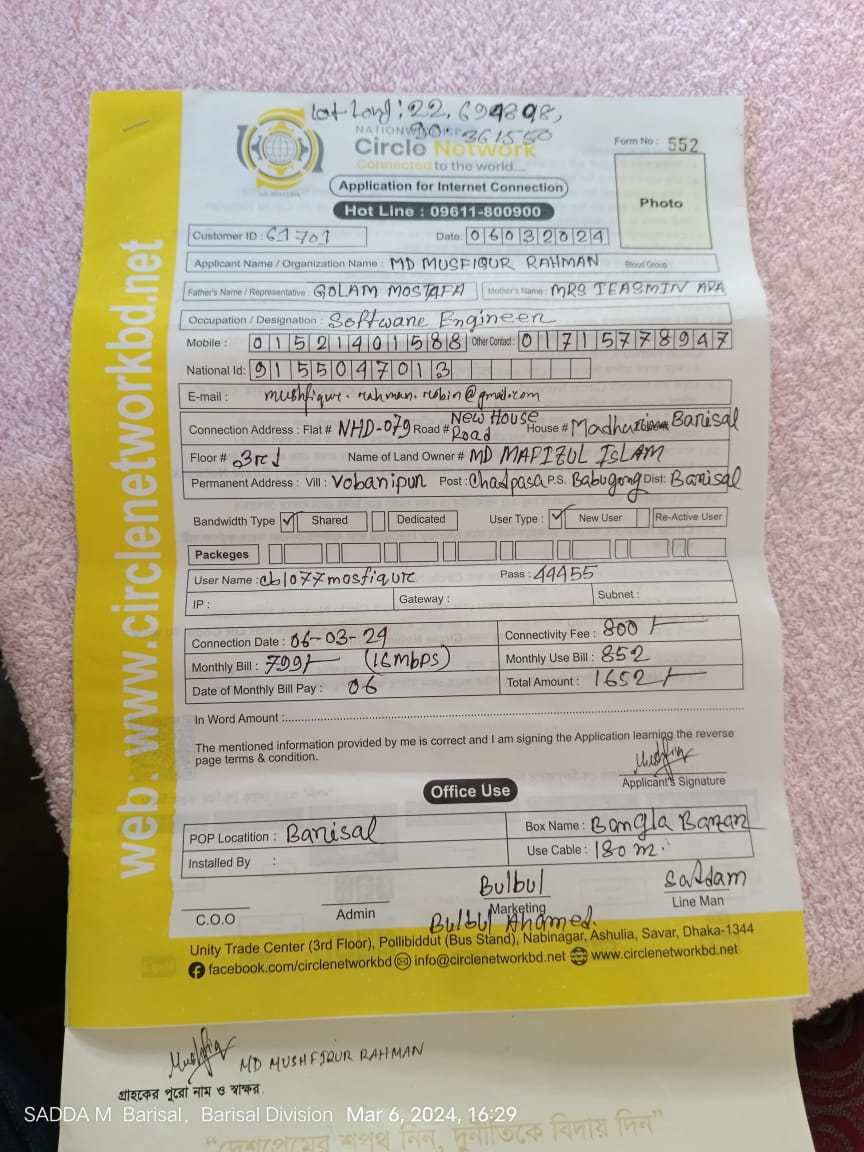 Lat Long: 22.694898,
90.361550
NATIONWIDE ISP
Circle Network
Connected to the world....
Form No : 552
Application for Internet Connection
Photo
Hot Line : 09611-800900
Customer ID : 61701 Date: 06032024
Applicant Name / Organization Name : MD MUSFIQUR RAHMAN Blood Group :
Father's Name / Representative : GOLAM MOSTAFA Mother's Name : MRS IEASMIN ARA
Occupation / Designation : Software Engineer
Mobile : 01521401588 Other Contact : 01715778947
National Id: 9155047013
E-mail : mushfiqur.rahman.robin@gmail.com
Connection Address : Flat # NHD-079 Road # New House Road House # Barisal
Floor # 3rd Name of Land Owner # MD MAFIZUL ISLAM
Permanent Address : Vill : Vobanipur Post : Chadpasa P.S. Babugong Dist: Barisal
Bandwidth Type ✓ Shared Dedicated User Type : ✓ New User Re-Active User
Packeges
User Name : cb1077mosfiqure Pass : 44455
IP : Gateway : Subnet :
Connection Date : 06-03-24 Connectivity Fee : 800/-
Monthly Bill : 799/- (16Mbps) Monthly Use Bill : 852
Date of Monthly Bill Pay : 06 Total Amount : 1652/-
In Word Amount :
The mentioned information provided by me is correct and I am signing the Application learning the reverse
page terms & condition.
Mushfiq
Applicant's Signature
Office Use
POP Locatition : Barisal Box Name : Bangla Bazar
Installed By : Use Cable : 180 m.
Bulbul Saddam
C.O.O Admin Marketing Line Man
Bulbul Ahamed.
Unity Trade Center (3rd Floor), Pollibiddut (Bus Stand), Nabinagar, Ashulia, Savar, Dhaka-1344
facebook.com/circlenetworkbd info@circlenetworkbd.net www.circlenetworkbd.net
web : www.circlenetworkbd.net
Mushfiq MD MUSHFIQUR RAHMAN
গ্রাহকের পুরো নাম ও স্বাক্ষর
SADDA M Barisal, Barisal Division Mar 6, 2024, 16:29
“দেশপ্রেমের শপথ নিন, দুর্নীতিকে বিদায় দিন”